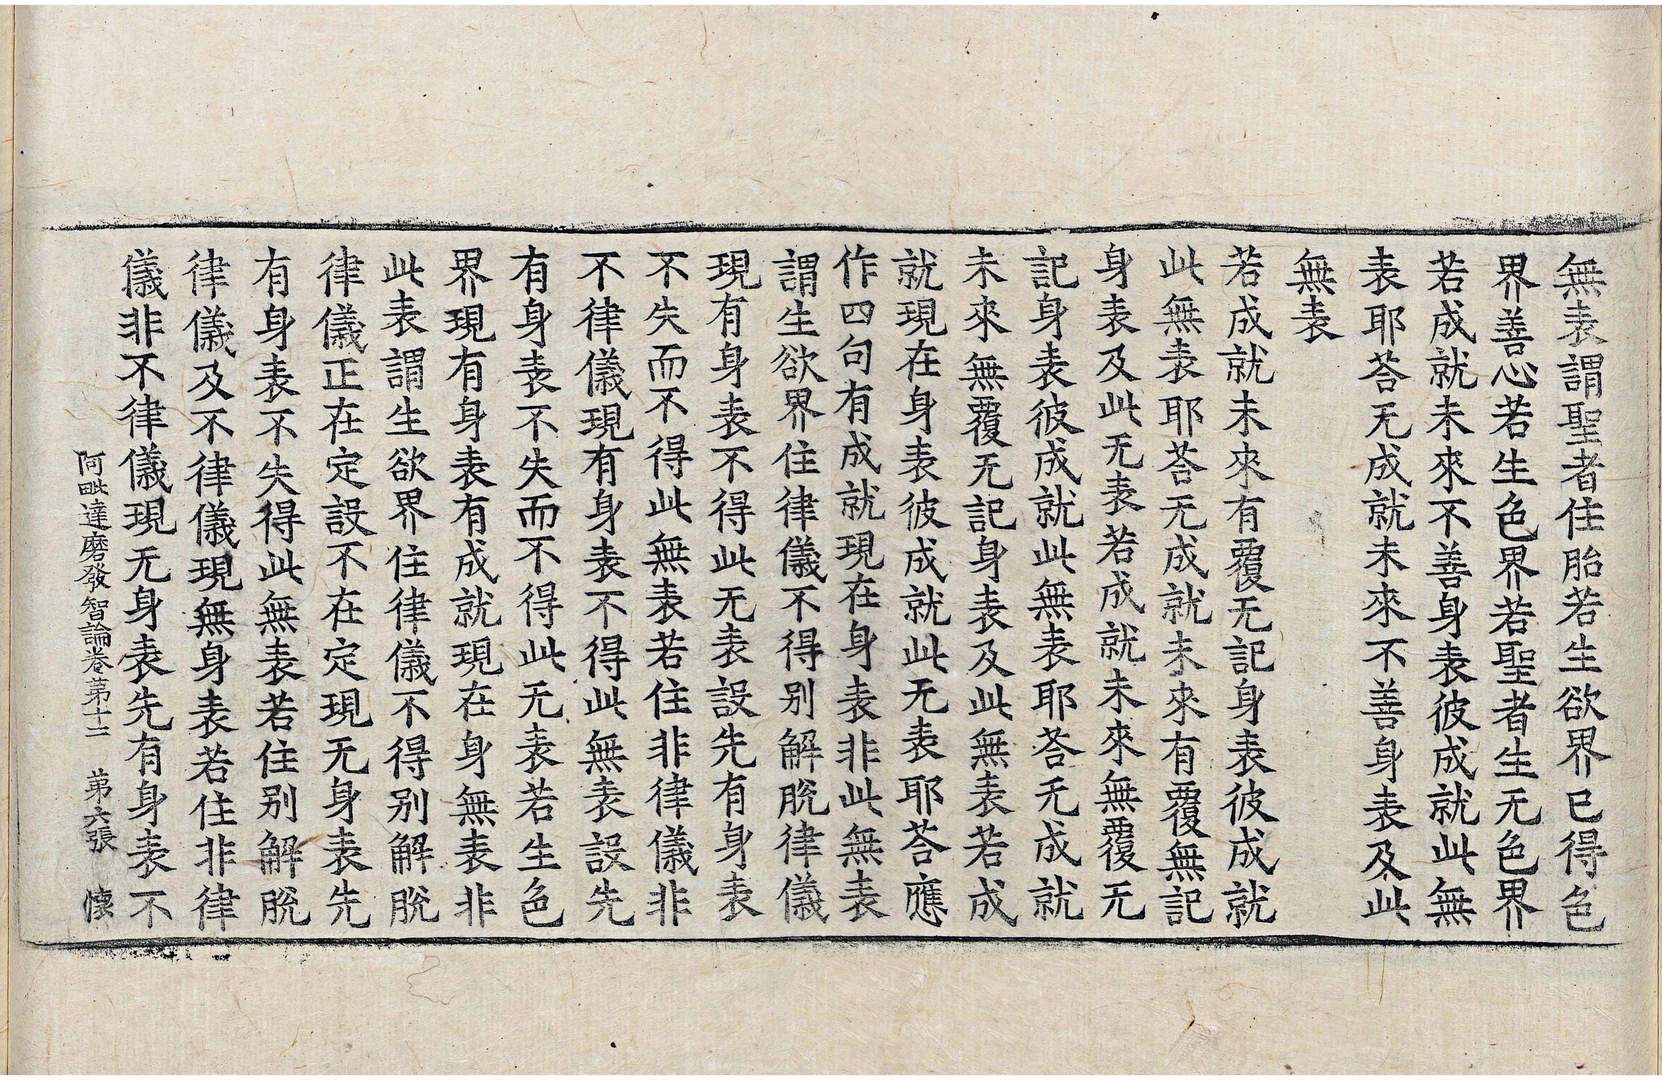 無表謂聖者住胎若生欲界已得色
界善心若生色界若聖者生无色界
若成就未來不善身表彼成就此無
表耶荅无成就未來不善身表及此
無表
若成就未來有覆无記身表彼成就
此無表耶荅无成就未來有覆無記
身表及此无表若成就未來無覆无
記身表彼成就此無表耶荅无成就
未來無覆无記身表及此無表若成
就現在身表彼成就此无表耶荅應
作四句有成就現在身表非此無表
謂生欲界住律儀不得别解脫律儀
現有身表不得此无表設先有身表
不失而不得此無表若住非律儀非
不律儀現有身表不得此無表設先
有身表不失而不得此无表若生色
界現有身表有成就現在身無表非
此表謂生欲界住律儀不得别解脫
律儀正在定設不在定現无身表先
有身表不失得此無表若住别解脫
律儀及不律儀現無身表若住非律
儀非不律儀現无身表先有身表不
阿毗達磨發智論卷第十二 第六張 懷